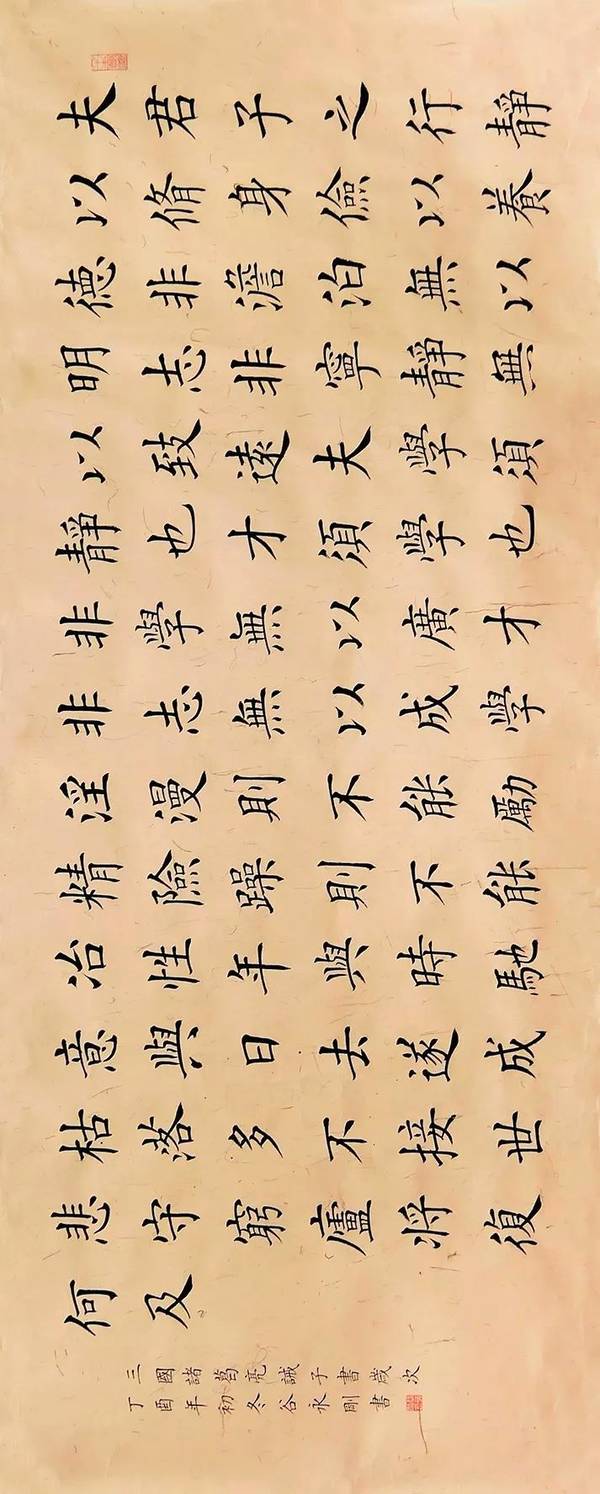 夫君子之行靜
以脩身儉以養
德非澹泊無以
明志非寧靜無
以致遠夫學須
靜也才須學也
非學無以廣才
非志無以成學
淫漫則不能勵
精險躁則不能
冶性年與時馳
意與日去遂成
枯落多不接世
悲守窮廬將復
何及
三國諸葛亮誡子書歲次
丁酉年初冬谷永剛書